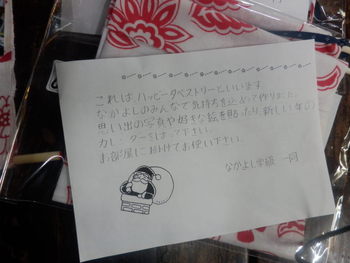 これは ハッピータペストリーといいます。
なかよしのみんなで気持ちを込めて作りました。
思い出の写真や好きな絵を貼ったり、新しい年の
カレンダーをはって下さい。
お部屋にかけてお使い下さい。
なかよし学級 一同